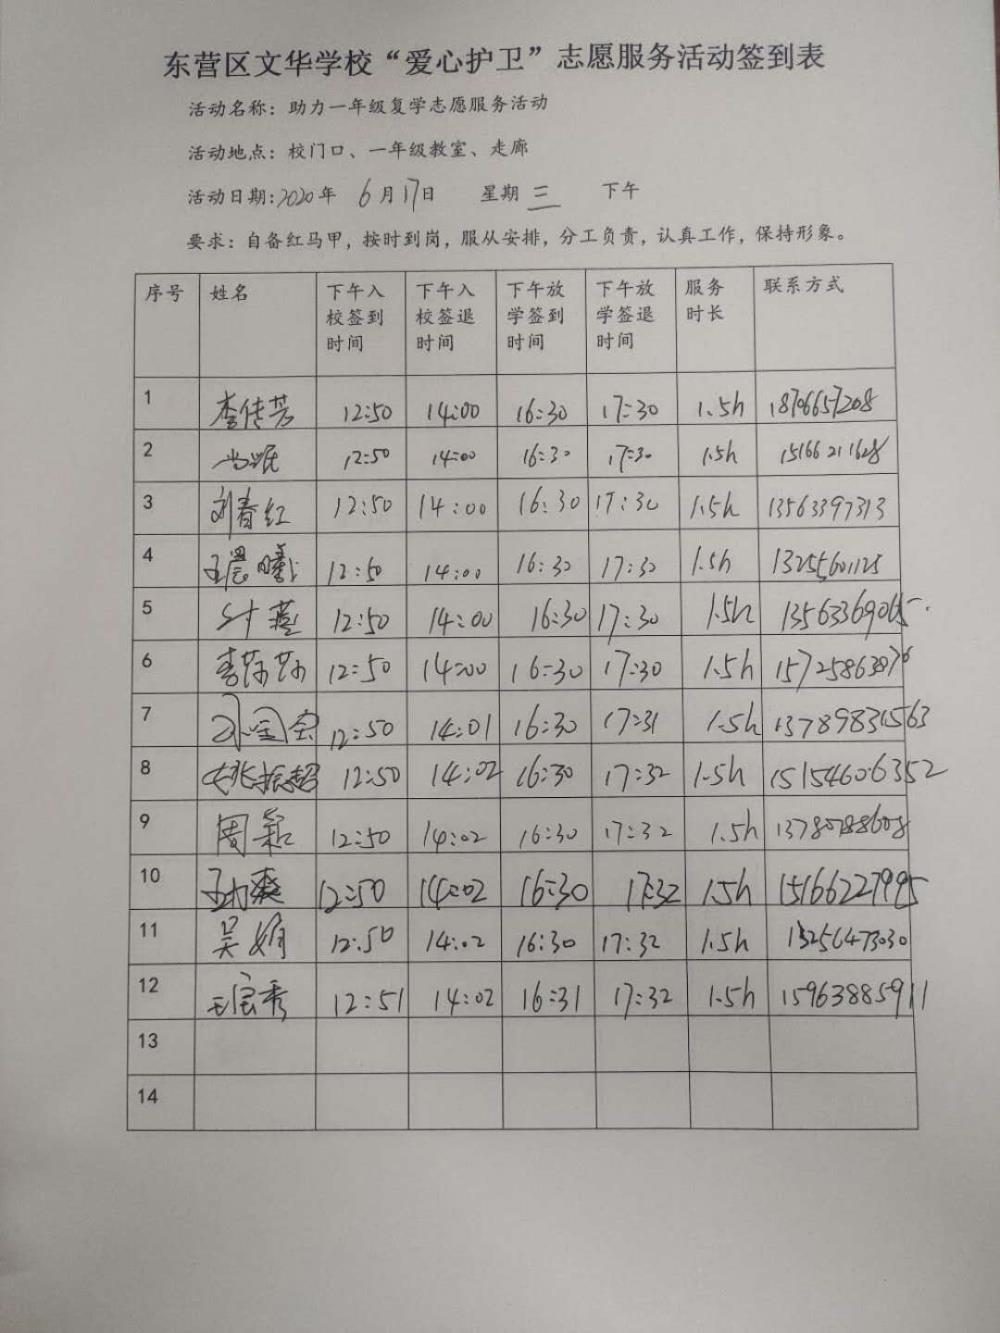 东营区文华学校“爱心护卫”志愿服务活动签到表
活动名称：助力一年级复学志愿服务活动
活动地点：校门口、一年级教室、走廊
活动日期：2020年 6月17日 星期三 下午
要求：自备红马甲，按时到岗，服从安排，分工负责，认真工作，保持形象。
序号 姓名 下午入校签到时间 下午入校签退时间 下午放学签到时间 下午放学签退时间 服务时长 联系方式
1 李传芳 12:50 14:00 16:30 17:30 1.5h 18706657208
2 12:50 14:00 16:30 17:30 1.5h 15166211628
3 刘春红 12:50 14:00 16:30 17:30 1.5h 13563397313
4 王晨曦 12:50 14:00 16:30 17:30 1.5h 13255601125
5 12:50 14:00 16:30 17:30 1.5h 13563369065
6 李莎莎 12:50 14:00 16:30 17:30 1.5h 15725863876
7 12:50 14:01 16:30 17:31 1.5h 13789831563
8 姚振超 12:50 14:02 16:30 17:32 1.5h 15154606352
9 周颖 12:50 14:02 16:30 17:32 1.5h 13780788608
10 12:50 14:02 16:30 17:32 1.5h 15166227995
11 吴娟 12:50 14:02 16:30 17:32 1.5h 13256473030
12 王宝秀 12:51 14:02 16:31 17:32 1.5h 15963885911
13
14